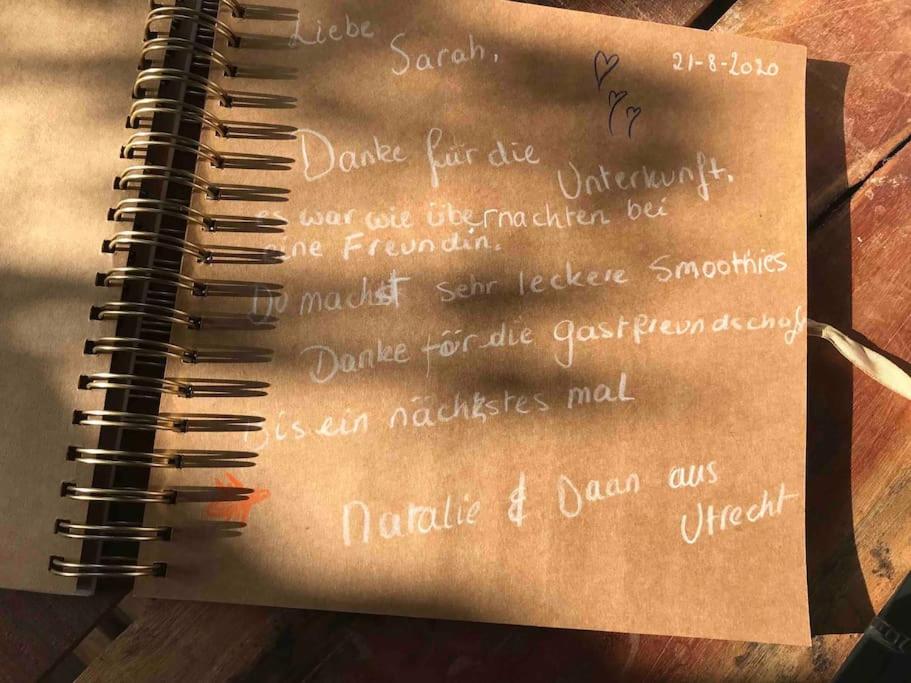 Liebe
Sarah,
21-8-2020
Danke für die
Unterkunft,
es war wie übernachten bei
eine Freundin.
Du machst sehr leckere Smoothies
Danke för die gastfreundschaft
Bis ein nächstes mal
Natalie & Daan aus
Utrecht